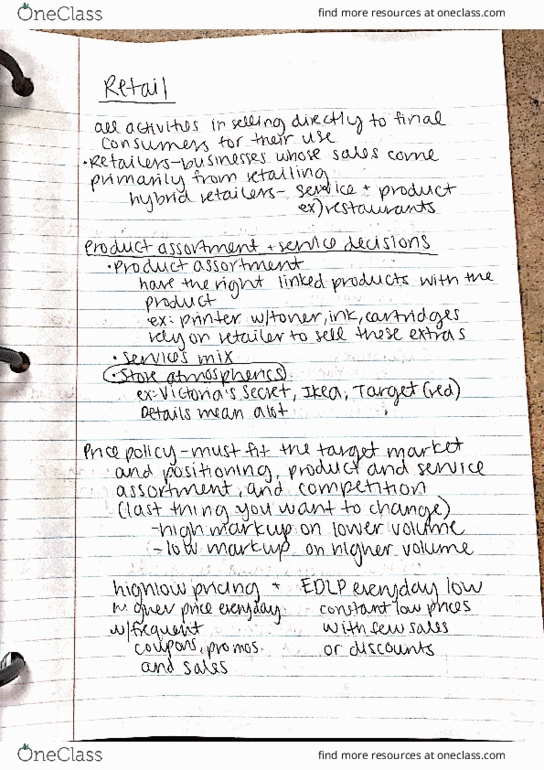 OneClass
find more resources at oneclass.com
Retail
all activities in selling directly to final
consumers for their use
•Retailers-businesses whose sales come
primarily from retailing
hybrid retailers- service + product
ex) restaurants
Product assortment + service decisions
•Product assortment
have the right linked products with the
product
ex: printer w/toner, ink, cartridges
rely on retailer to sell these extras
•services mix
•Store atmospherics
ex: Victoria's Secret, Ikea, Target (red)
Details mean alot
Price policy-must fit the target market
and positioning, product and service
assortment, and competition
(last thing you want to change)
-high markup on lower volume
-low markup on higher volume
highlow pricing + EDLP everyday low
higher price everyday constant low prices
w/frequent with few sales
coupons, promos. or discounts
and sales
OneClass
find more resources at oneclass.com